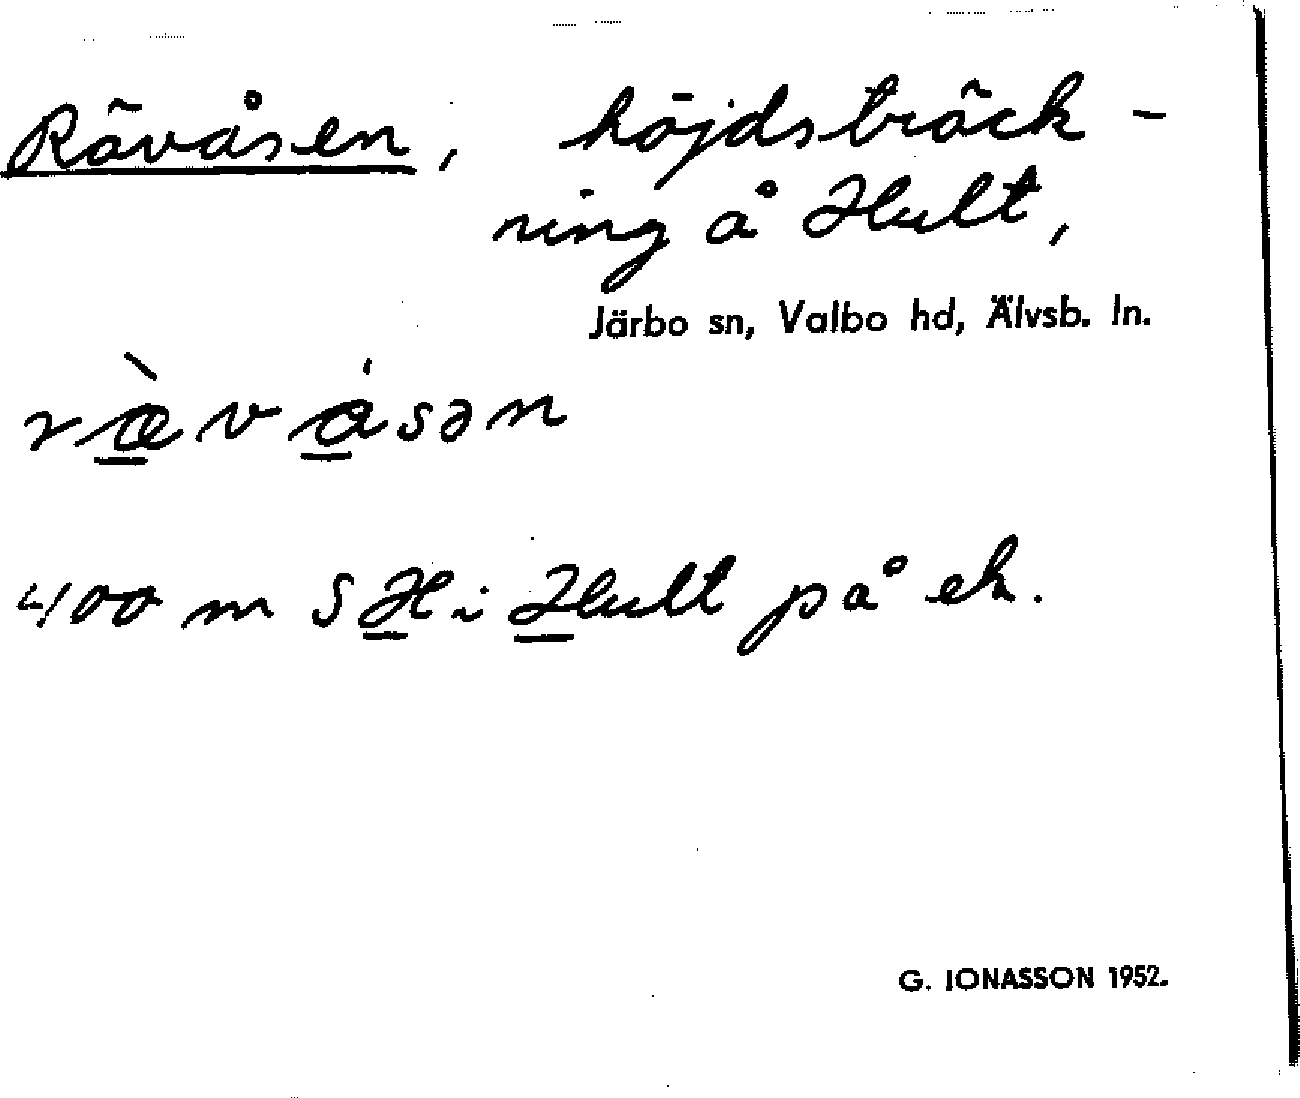 Rävåsen, höjdsträck-
ning å Hult,
Järbo sn, Valbo hd, Älvsb. ln.
ræ̀vásən
400 m S H i Hult på ek.
G. IONASSON 1952.